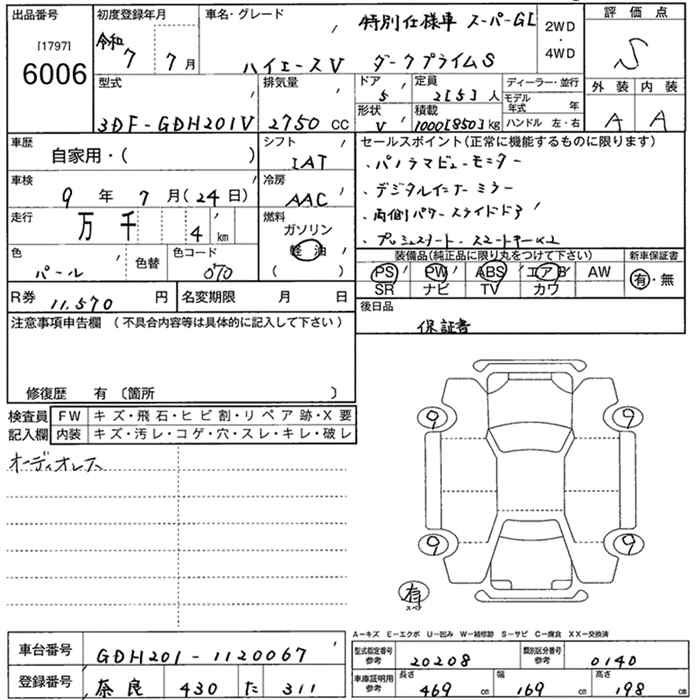 出品番号
[1797]
6006
初度登録年月
令和 7 7 月
車名・グレード
特別仕様車 スーパーGL
ハイエースV ダークプライムS
2WD
・
4WD
評価点
S
外装 内装
A A
型式
3DF-GDH201V
排気量
2750 cc
ドア
5
定員
2[5]人
形状
V
積載
1000[850]kg
ディーラー・並行
モデル年式 年
ハンドル 左・右
車歴
自家用・( )
シフト
IAT
車検
9 年 7 月(24日)
冷房
AAC
走行
万 千 4 km
燃料
ガソリン
軽油
( )
色
パール
色替
色コード
070
セールスポイント(正常に機能するものに限ります)
、パノラマビューモニター
、デジタルインナーミラー
、両側パワースライドドア
、プッシュスタート・スマートキーx2
装備品(純正品に限り丸をつけて下さい)
新車保証書
PS PW ABS エアB AW
SR ナビ TV カワ
有・無
R券 11,570 円
名変期限 月 日
後日品
保証書
注意事項申告欄(不具合内容等は具体的に記入して下さい)
修復歴 有〔箇所 〕
検査員記入欄
FW キズ・飛石・ヒビ割・リペア跡・X要
内装 キズ・汚レ・コゲ・穴・スレ・キレ・破レ
オーディオレス
9 9
9 9
有
スペア
A-キズ E-エクボ U-凹み W-補修跡 S-サビ C-腐食 XX-交換済
車台番号 GDH201-1120067
登録番号 奈良 430 た 311
型式指定番号 参考 20208
類別区分番号 参考 0140
車庫証明用 参考
長さ 469 cm
幅 169 cm
高さ 198 cm